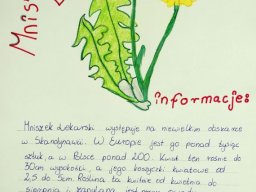 Mnis
informacje:
Mniszek Lekarski występuje na niewielkim obszarze
w Skandynawi. W Europie jest go ponad tysiąc
sztuk, a w Polsce ponad 200. Kwiat ten rośnie do
30cm wysokości, a jego koszyczki kwiatowe od
2,5 do 5cm. Roślina ta kwitnie od kwietnia do
sierpnia i zapylana jest przez